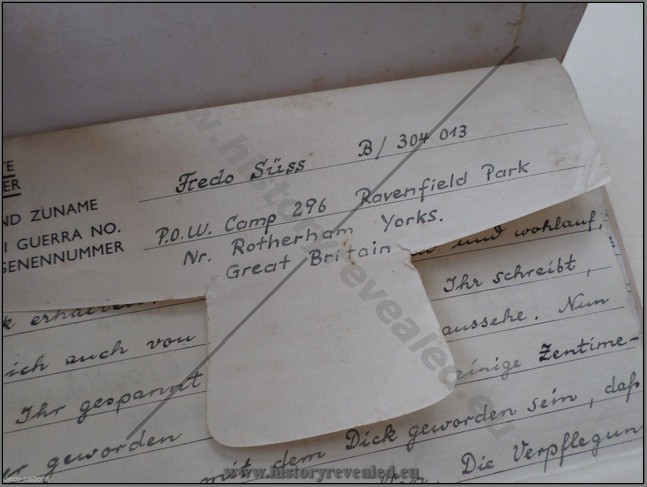 TE
ER
Fredo Süss B/ 304 013
ND ZUNAME
I GUERRA NO.
GENENNUMMER
P.O.W. Camp 296 Ravenfield Park
Nr. Rotherham Yorks.
Great Britain
und wohlauf,
erhalten, Ihr schreibt,
ich auch von aussehe. Nun
Ihr gespannt einige Zentime-
geworden mit dem Dick geworden sein, daß
Die Verpflegun
www.historyrevealed.eu
www.historyrevealed.eu